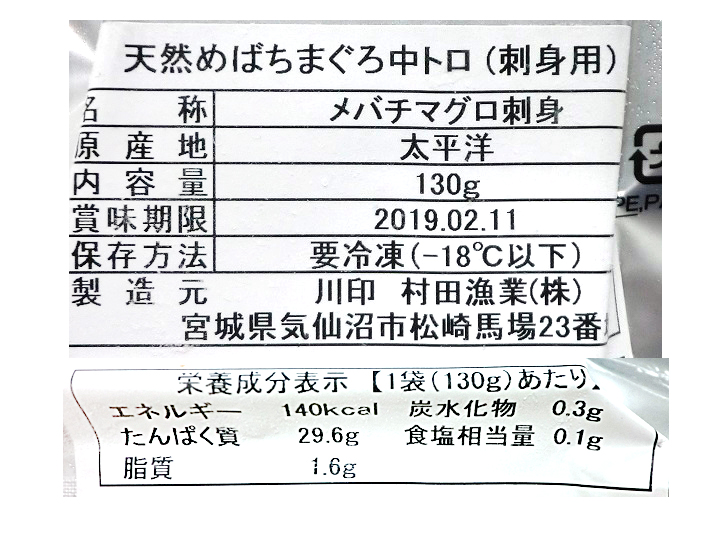 天然めばちまぐろ中トロ(刺身用)
名称 メバチマグロ刺身
原産地 太平洋
内容量 130g
賞味期限 2019.02.11
保存方法 要冷凍(-18℃以下)
製造元 川印 村田漁業(株)
宮城県気仙沼市松崎馬場23番
PE,P
栄養成分表示【1袋(130g)あたり】
エネルギー 140kcal 炭水化物 0.3g
たんぱく質 29.6g 食塩相当量 0.1g
脂質 1.6g